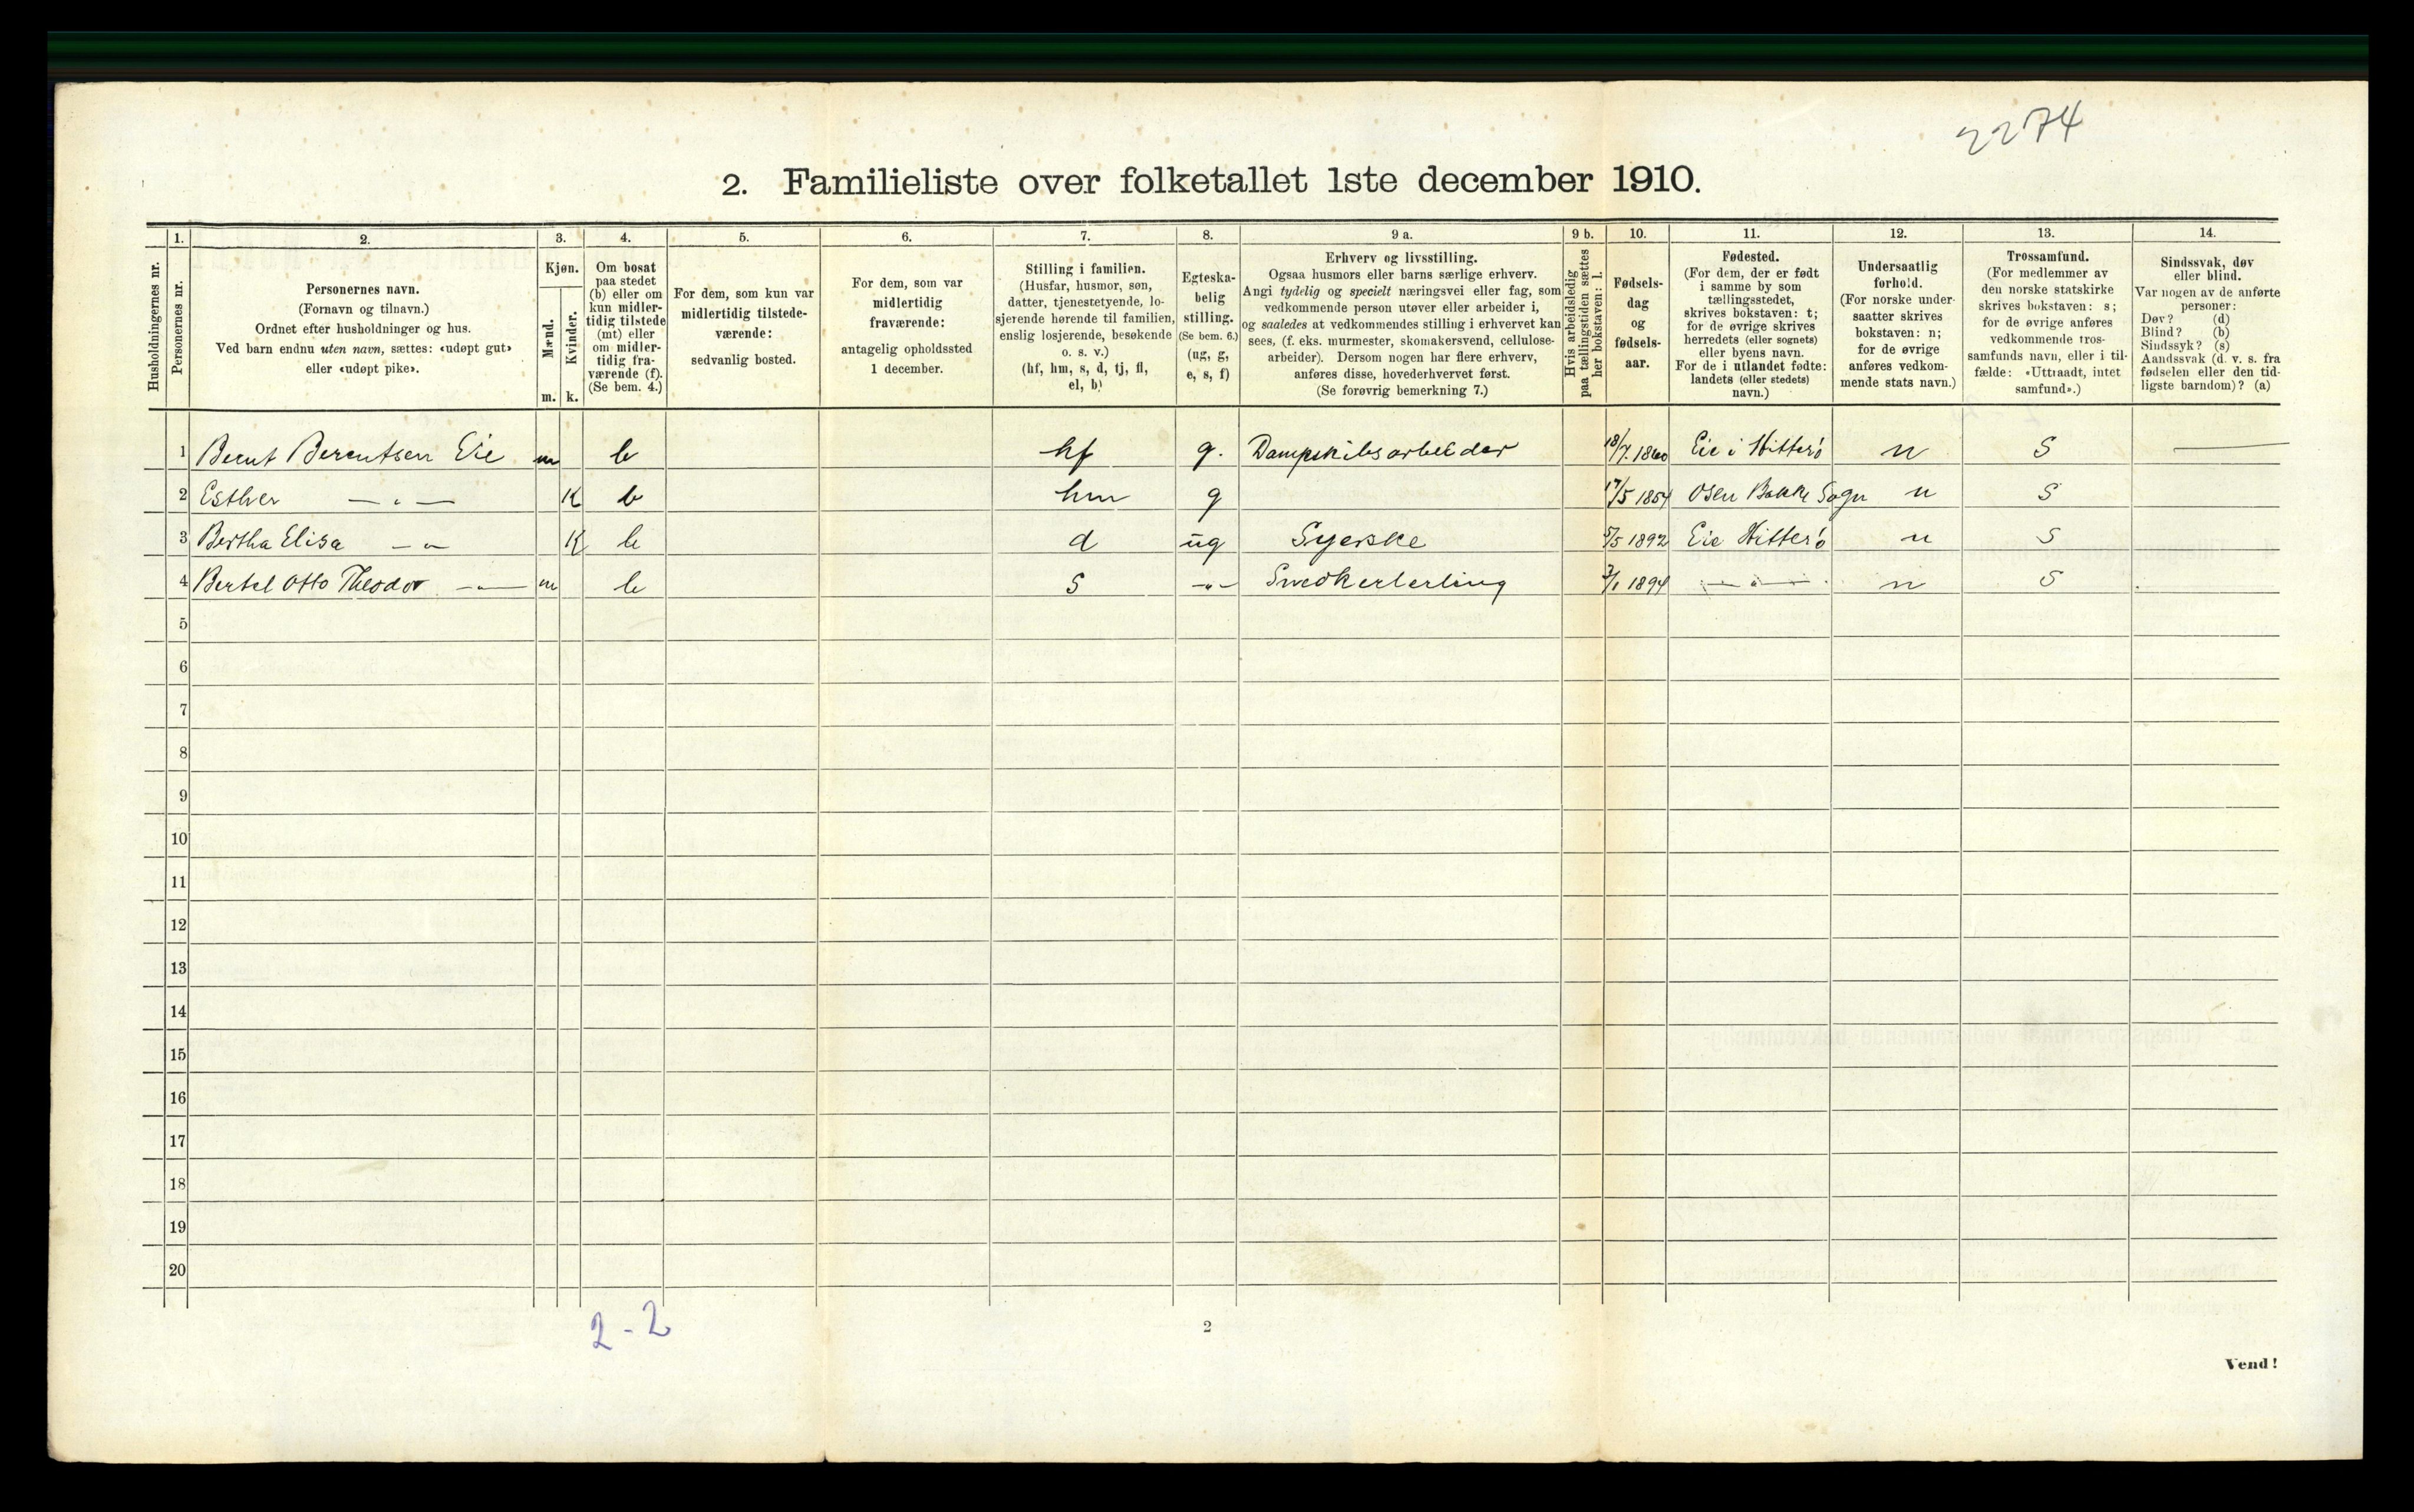 2274
2. Familieliste over folketallet 1ste december 1910.
Husholdningernes nr.
1.
Personernes nr.
2.
Personernes navn.
(Fornavn og tilnavn.)
Ordnet efter husholdninger og hus.
Ved barn endnu uten navn, sættes: «udøpt gut»
eller «udøpt pike».
3.
Kjøn.
Mænd.
Kvinder.
m. k.
4.
Om bosat
paa stedet
(b) eller om
kun midler-
tidig tilstede
(mt) eller
om midler-
tidig fra-
værende (f).
(Se bem. 4.)
5.
For dem, som kun var
midlertidig tilstede-
værende:
sedvanlig bosted.
6.
For dem, som var
midlertidig
fraværende:
antagelig opholdssted
1 december.
7.
Stilling i familien.
(Husfar, husmor, søn,
datter, tjenestetyende, lo-
sjerende hørende til familien,
enslig losjerende, besøkende
o. s. v.)
(hf, hm, s, d, tj, fl,
el, b)
8.
Egteska-
belig
stilling.
(Se bem. 6.)
(ug, g,
e, s, f)
9 a.
Erhverv og livsstilling.
Ogsaa husmors eller barns særlige erhverv.
Angi tydelig og specielt næringsvei eller fag, som
vedkommende person utøver eller arbeider i,
og saaledes at vedkommendes stilling i erhvervet kan
sees, (f. eks. murmester, skomakersvend, cellulose-
arbeider). Dersom nogen har flere erhverv,
anføres disse, hovederhvervet først.
(Se forøvrig bemerkning 7.)
9 b.
Hvis arbeidsledig
paa tællingstiden sættes
her bokstaven: l.
10.
Fødsels-
dag
og
fødsels-
aar.
11.
Fødested.
(For dem, der er født
i samme by som
tællingsstedet,
skrives bokstaven: t;
for de øvrige skrives
herredets (eller sognets)
eller byens navn.
For de i utlandet fødte:
landets (eller stedets)
navn.)
12.
Undersaatlig
forhold.
(For norske under-
saatter skrives
bokstaven: n;
for de øvrige
anføres vedkom-
mende stats navn.)
13.
Trossamfund.
(For medlemmer av
den norske statskirke
skrives bokstaven: s;
for de øvrige anføres
vedkommende tros-
samfunds navn, eller i til-
fælde: «Uttraadt, intet
samfund».)
14.
Sindssvak, døv
eller blind.
Var nogen av de anførte
personer:
Døv? (d)
Blind? (b)
Sindssyk? (s)
Aandssvak (d. v. s. fra
fødselen eller den tid-
ligste barndom)? (a)
1 Bernt Berentsen Eie m b hf g. Dampskibsarbeider 18/7 1860 Eie i Hitterö n S —
2 Esther — " — K b hm g 17/5 1854 Osen Bakke Sogn n S
3 Bertha Elisa — " K b d ug Syerske 5/5 1892 Eie Hitterö n S
4 Bertel Otto Theodor — " — m b S — " — Snedkerlerling 3/1 1894 — " — n S
5
6
7
8
9
10
11
12
13
14
15
16
17
18
19
20
2 - 2
2
Vend!